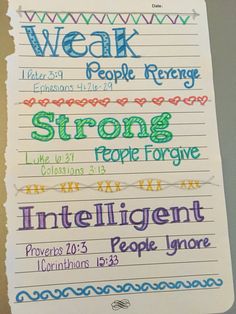 Date:
Weak
1 Peter 3:9 People Revenge
Ephesians 4:26-29
Strong
Luke 6:37 People Forgive
Colossians 3:13
Intelligent
Proverbs 20:3 People Ignore
1 Corinthians 15:33